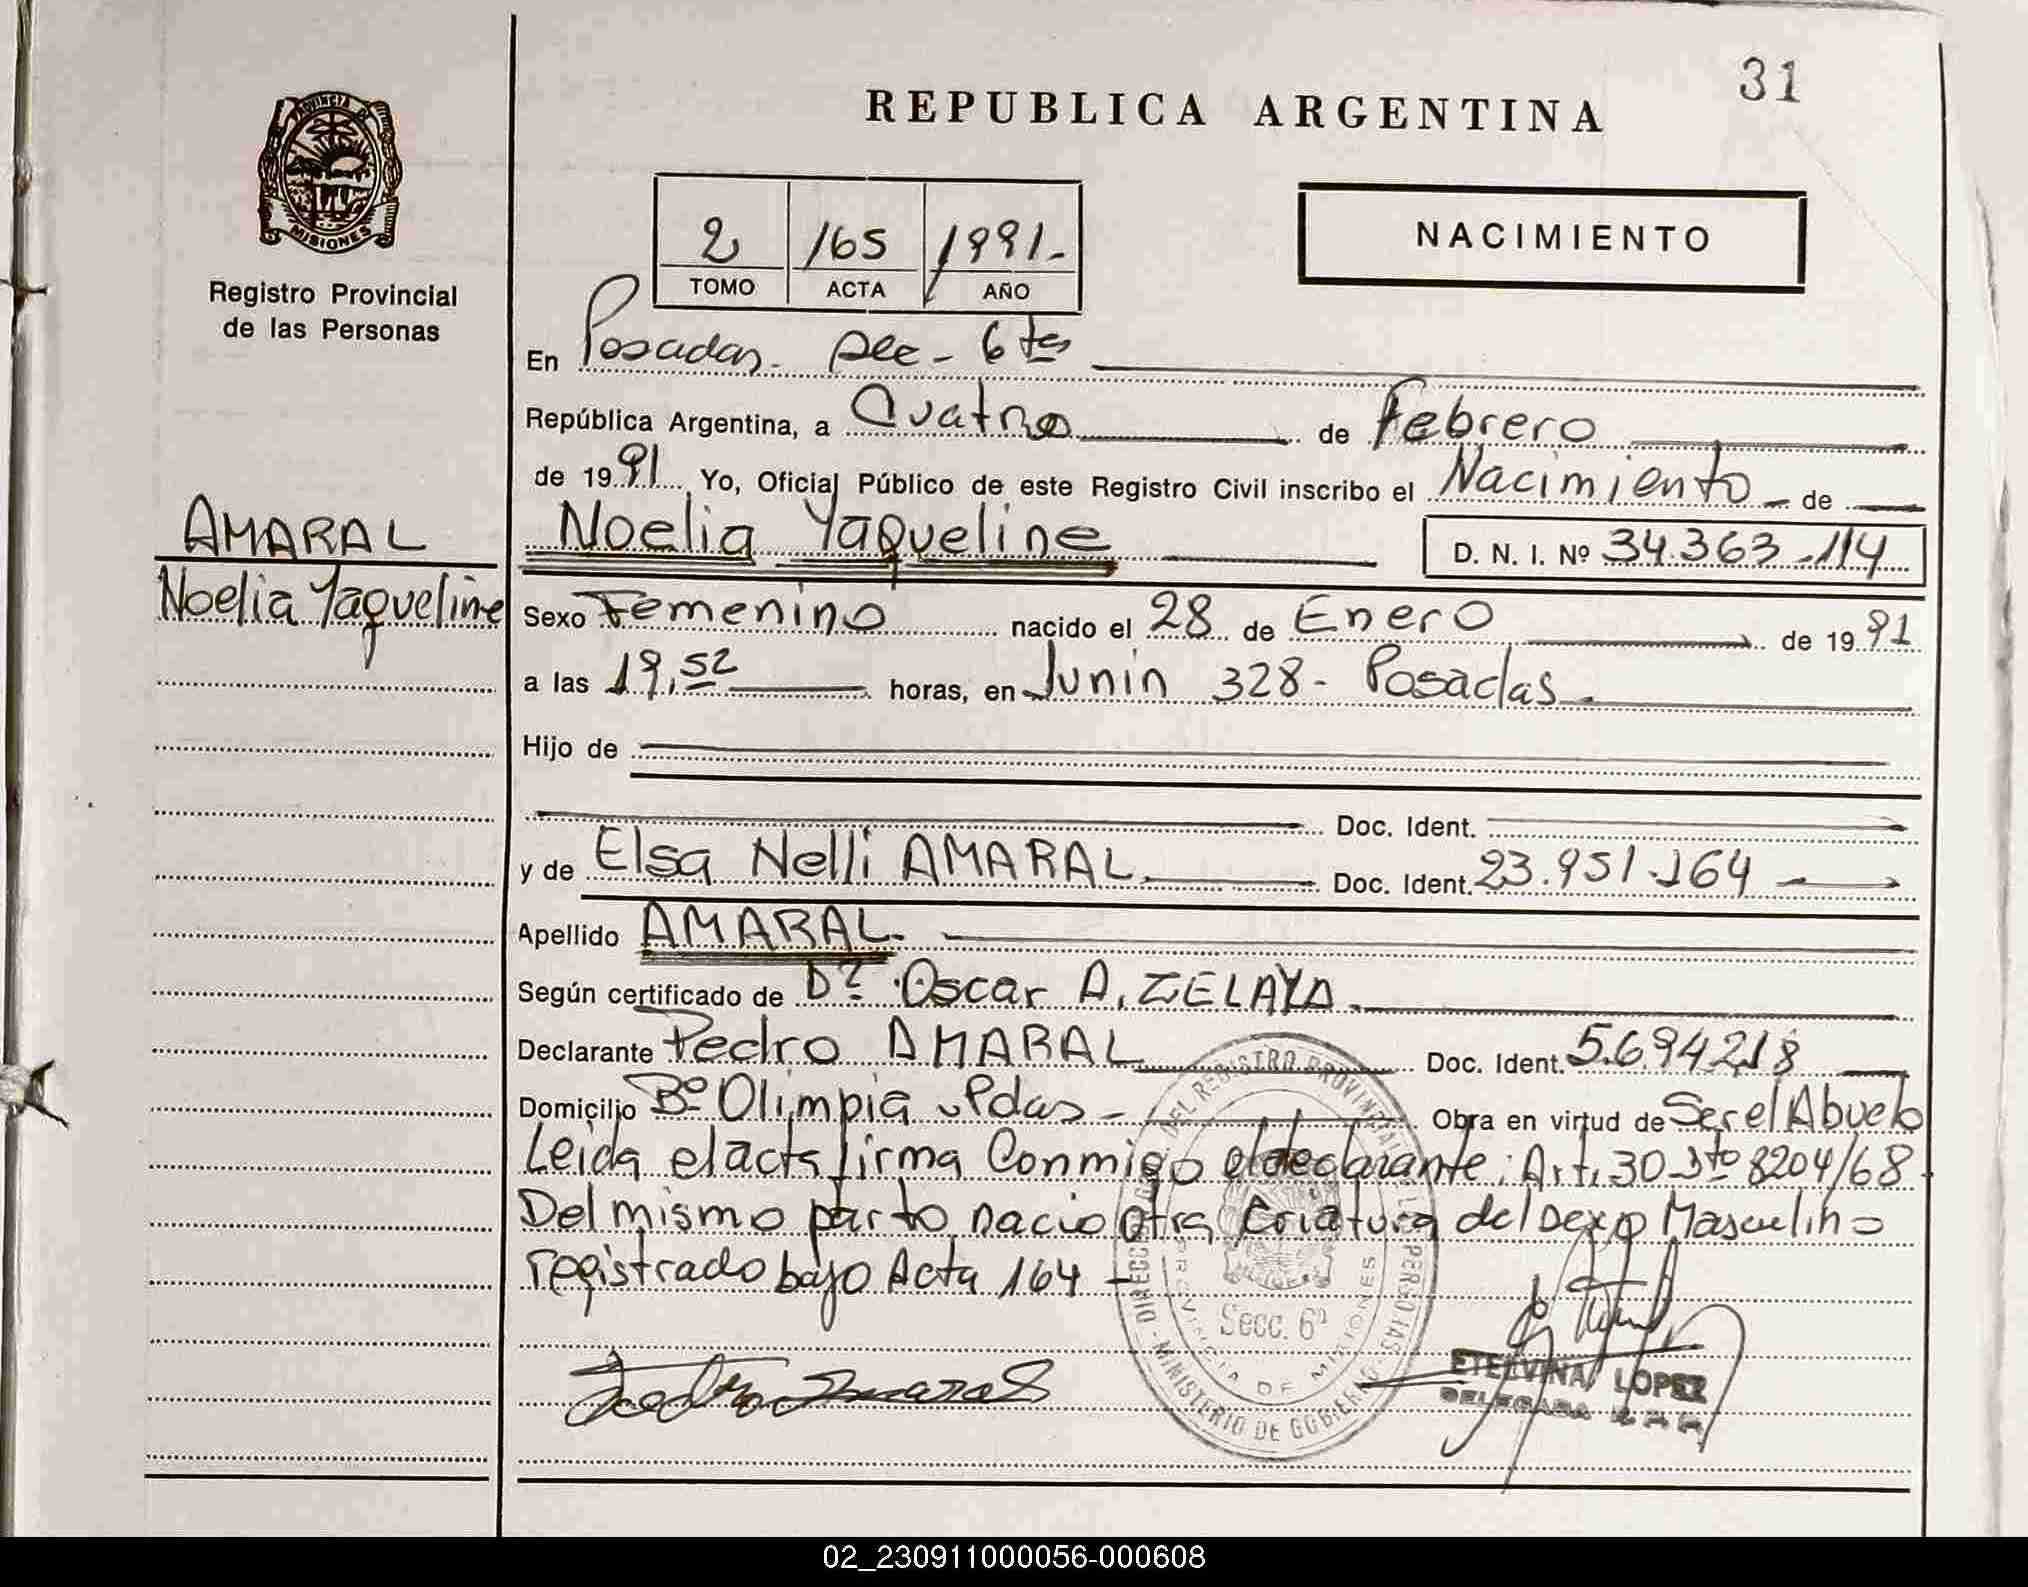 31
REPUBLICA ARGENTINA
PROVINCIA
MISIONES
Registro Provincial
de las Personas
NACIMIENTO
2 165 1991-
TOMO ACTA AÑO
En Posadas. - 6tas
República Argentina, a Cuatro de Febrero
de 1991 Yo, Oficial Público de este Registro Civil inscribo el Nacimiento de
AMARAL
Noelia Yaqueline
Noelia Yaqueline D. N. I. Nº 34.363.114
Sexo Femenino nacido el 28 de Enero de 1991
a las 19,52 horas, en Junin 328- Posadas
Hijo de
Doc. Ident.
y de Elsa Nelli AMARAL Doc. Ident. 23.951.164
Apellido AMARAL.
Según certificado de Dr. Oscar A. ZELAYA.
Declarante Pedro AMARAL Doc. Ident. 5.694.218
Domicilio Bº Olimpia Pdas- Obra en virtud de Ser el Abuelo
Leida el acta firma Conmigo el declarante: Art. 30 Dto 8204/68
Del mismo parto nacio otra Criatura del Sexo Masculino
registrado bajo Acta 164-
Pedro Amaral
DIRECCION DEL REGISTRO PROVINCIAL DE LAS PERSONAS
PROVINCIA DE MISIONES
Secc. 6ª
MINISTERIO DE GOBIERNO
ETELVINA LOPEZ
DELEGADA
02_230911000056-000608